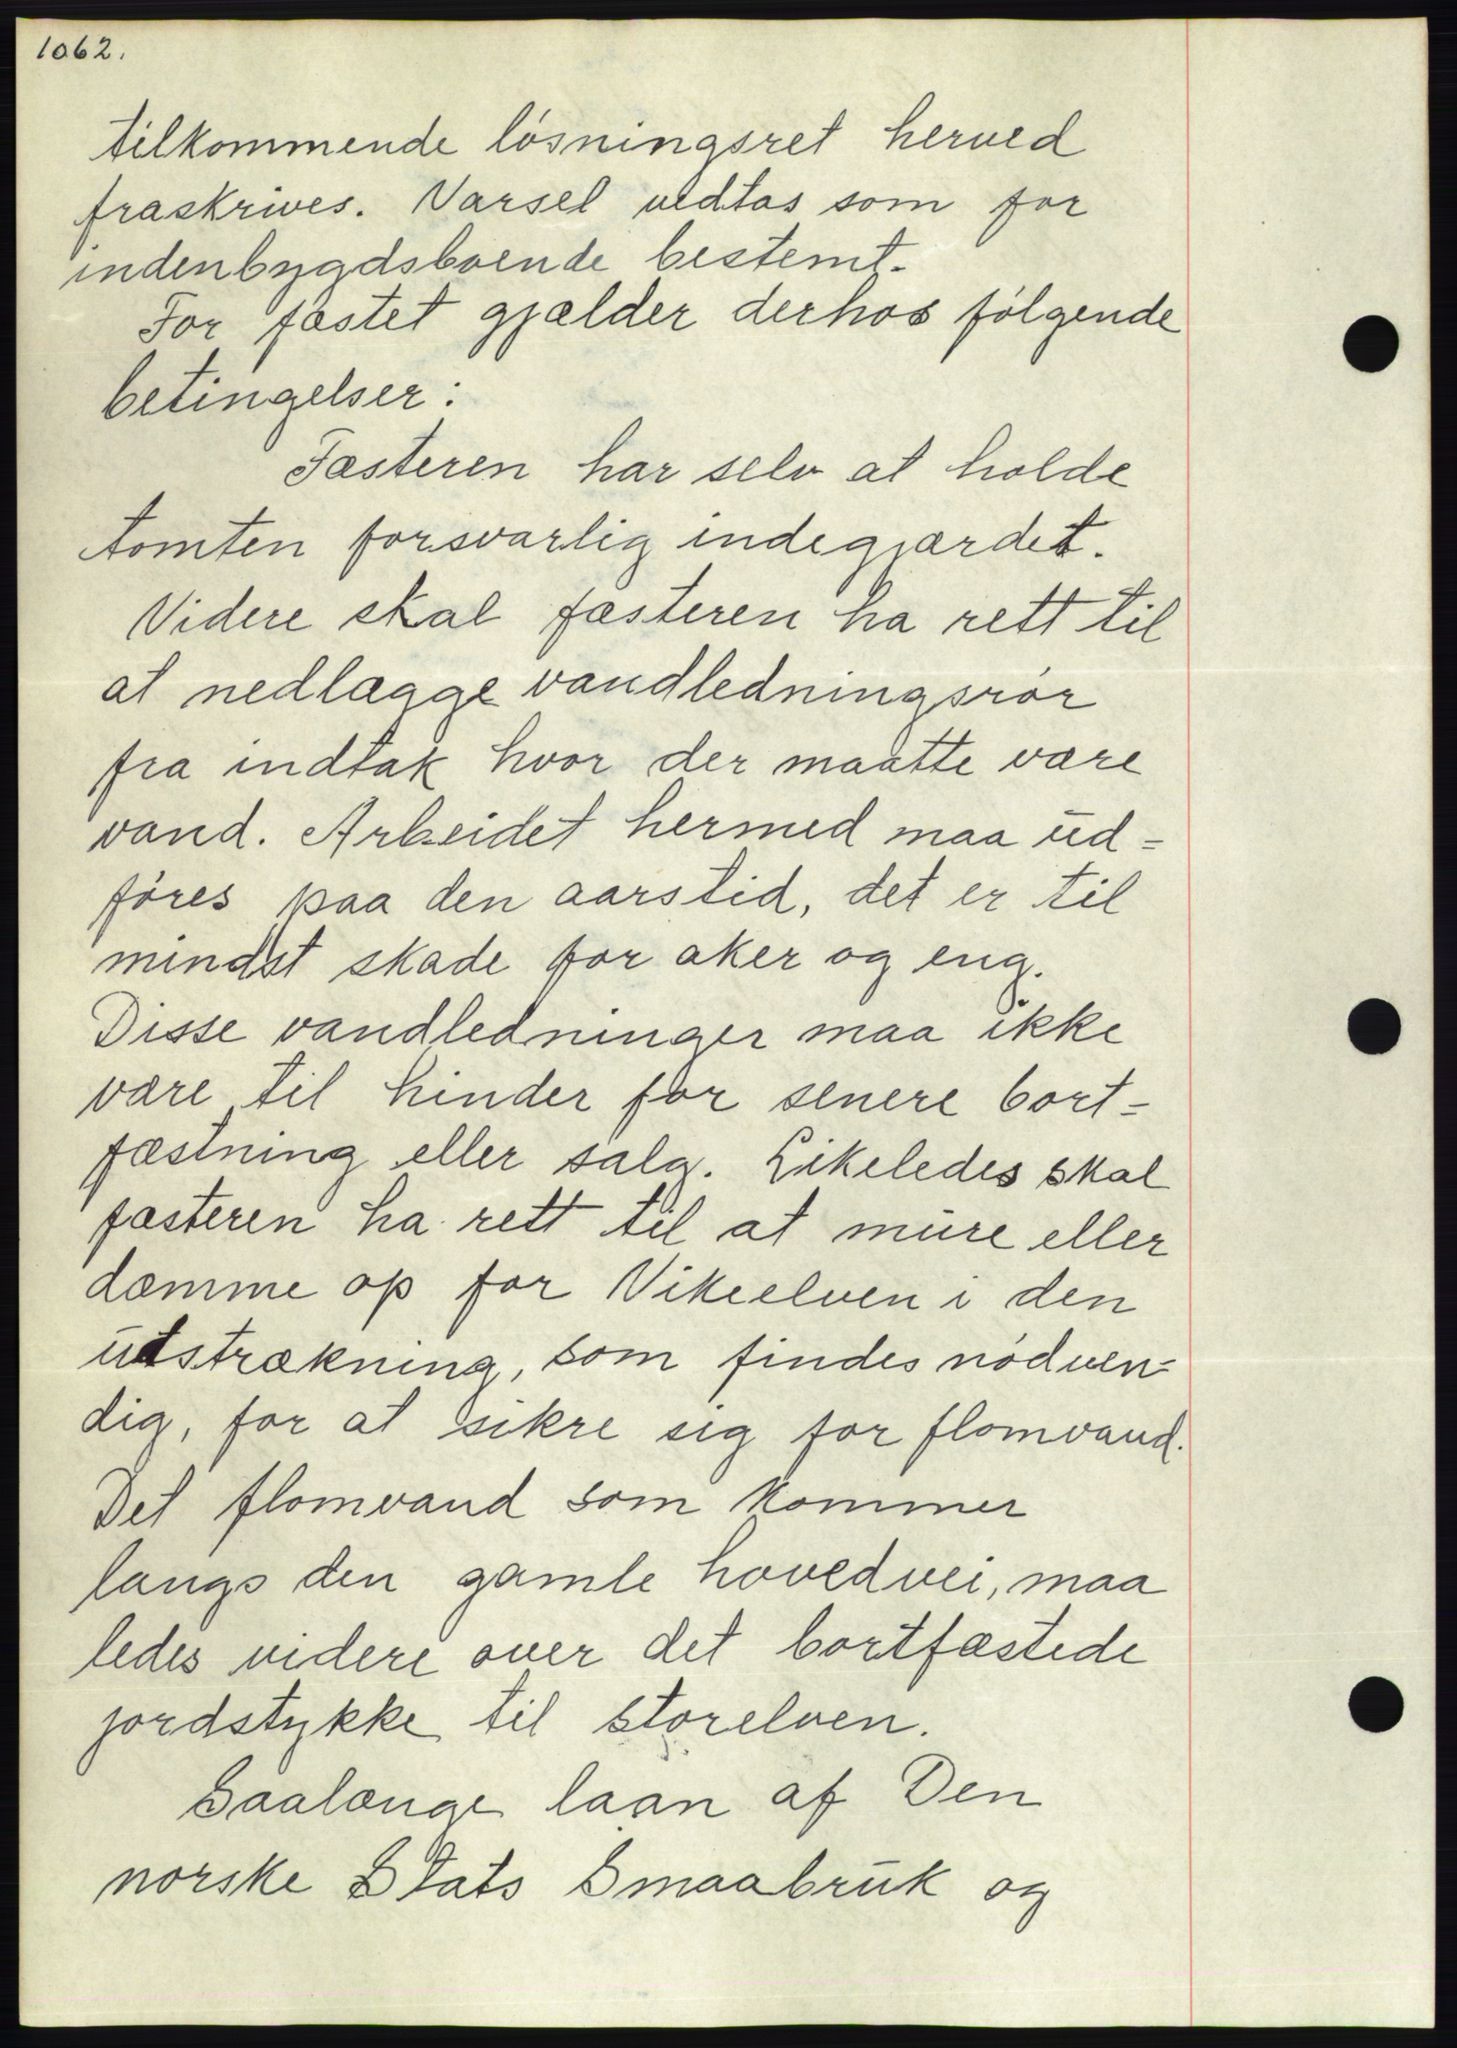 1062.
tilkommende løsningsret herved
fraskrives. Varsel vedtas som for
indenbygdsboende bestemt.
For fæstet gjælder derhos følgende
betingelser:
Fæsteren har selv at holde
tomten forsvarlig indegjærdet.
Videre skal fæsteren ha rett til
at nedlægge vandledningsrør
fra indtak hvor der maatte være
vand. Arbeidet hermed maa ud=
føres paa den aarstid, det er til
mindst skade for aker og eng.
Disse vandledninger maa ikke
være til hinder for senere bort=
fæstning eller salg. Likeledes skal
fæsteren ha rett til at mure eller
dæmme op for Vikeelven i den
utstrækning, som findes nødven=
dig, for at sikre sig for flomvand.
Det flomvand som kommer
langs den gamle hovedvei, maa
ledes videre over det bortfæstede
jordstykke til storelven.
Saalænge laan af Den
norske Stats Smaabruk og